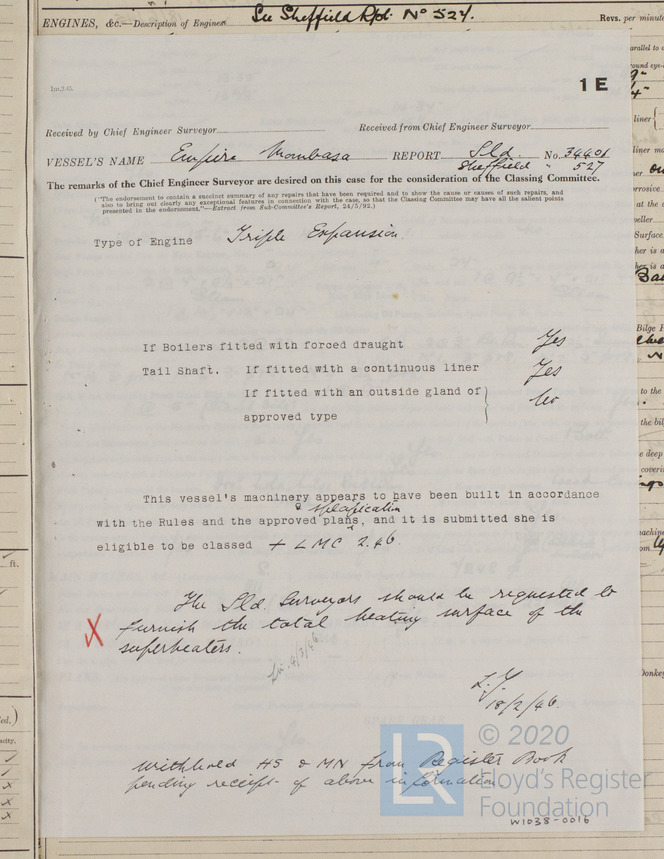 ENGINES, &c.—Description of Engines See Sheffield Rpt. No 527. Revs. per minute
1m,3.45.
1 E
Received by Chief Engineer Surveyor Received from Chief Engineer Surveyor
VESSEL'S NAME Empire Mombasa REPORT Sld. No. 34401
Sheffield " 527
The remarks of the Chief Engineer Surveyor are desired on this case for the consideration of the Classing Committee.
("The endorsement to contain a succinct summary of any repairs that have been required and to show the cause or causes of such repairs, and
also to bring out clearly any exceptional features in connection with the case, so that the Classing Committee may have all the salient points
presented in the endorsement."—Extract from Sub-Committee's Report, 24/5/92.)
Type of Engine Triple Expansion.
If Boilers fitted with forced draught Yes
Tail Shaft. If fitted with a continuous liner Yes
If fitted with an outside gland of
approved type No
This vessel's machinery appears to have been built in accordance
& specification
with the Rules and the approved plans, and it is submitted she is
eligible to be classed + LMC 2.46.
The Sld. Surveyors should be requested to
X furnish the total heating surface of the
superheaters.
4/3/46
18/2/46.
Withhold HS & MN from Register Book
pending receipt of above information
© 2020
LR
Lloyd's Register
Foundation
W1038-0016